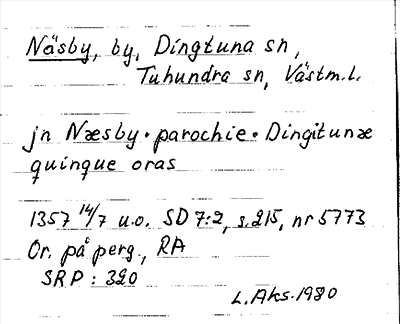 Näsby, by, Dingtuna sn,
Tuhundra sn, Västm.l.
jn Næsby · parochie · Dingitunæ
quinque oras
1357 14/7 u.o. SD 7:2, s.215, nr 5773
Or. på perg., RA
SRP: 320
L.Aks. 1980